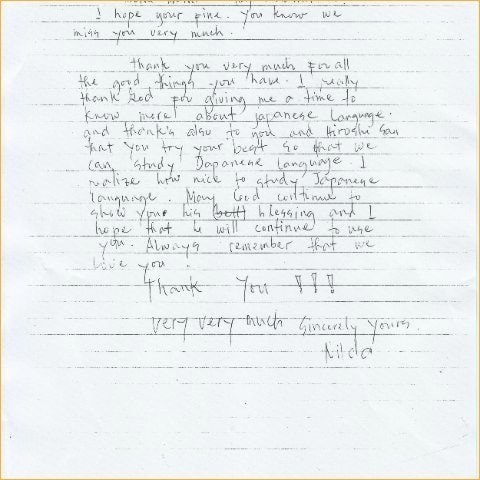 I hope your fine. You know we
miss you very much.
Thank you very much for all
the good things you have. I really
thank God for giving me a time to
know more about Japanese Language.
and thank's also to you and Hiroshi San
that you try your best so that we
can study Japanese Language. I
realize how nice to study Japanese
Language. May God continue to
show your his blessing and I
hope that he will continue to use
you. Always remember that we
love you.
Thank You !!!
Very very much Sincerely yours
Nilda